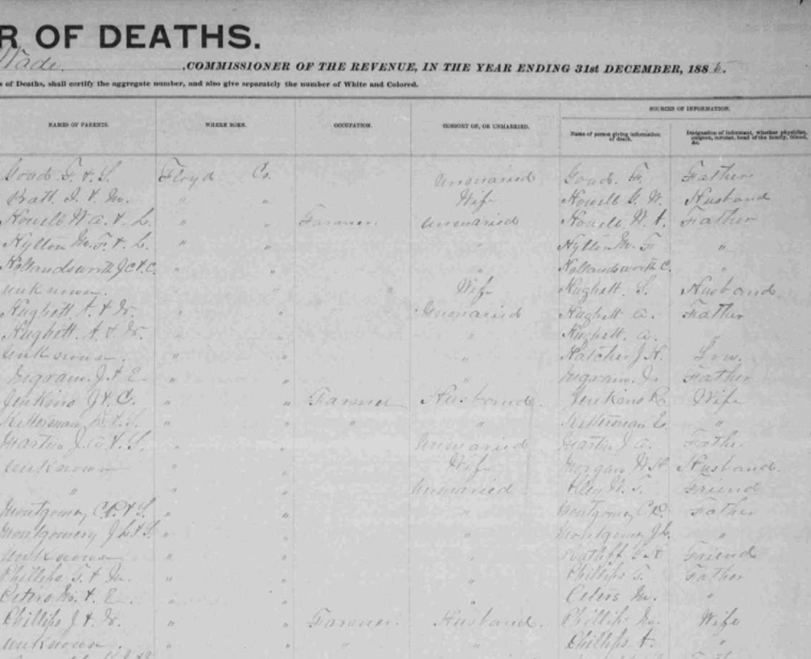 R OF DEATHS.
Wade. , COMMISSIONER OF THE REVENUE, IN THE YEAR ENDING 31st DECEMBER, 1886.
s of Deaths, shall certify the aggregate number, and also give separately the number of White and Colored.
SOURCES OF INFORMATION.
NAMES OF PARENTS. WHERE BORN. OCCUPATION. CONSORT OF, OR UNMARRIED. Name of person giving information of death. Designation of informant, whether physician, surgeon, relative, head of the family, friend, &c.
Goad F. & S. Floyd Co. Unmarried Goad. F. Father
Pratt. J. & M. " " Wife Howell G. W. Husband
Howell W A. & L. " " Farmer Unmarried Howell W. A. Father
Hylton M. F. & L. " " " Hylton M. F "
Hollandsworth J C & C. " " " Hollandsworth C. "
unknown " " Wife Hughett S. Husband
Hughett A. & " " Unmarried Hughett A. Father
Hughett. A. & " " " Hughett. A. "
unknown " " " Hatcher J. H.
Ingram J. & E. " " " Ingram J. Father
Jenkins J. & C. " " Farmer Husband Wife
Ketterman " " " " Ketterman E. "
Martin J. A. & S. " " Unmarried Martin J. A. Father
unknown " " Wife Morgan Husband
" " " Unmarried Friend
Montgomery C. R. & S. " " " Montgomery C R. Father
Montgomery J. L. & S. " " " Montgomery J L. "
unknown " " " Ratliff Friend
Phillips F. & M. " " " Phillips F. Father
Peters M. & E. " " " Peters M. "
Phillips J. & " " Farmer Husband Phillips M. Wife
unknown " " " " Phillips A. "